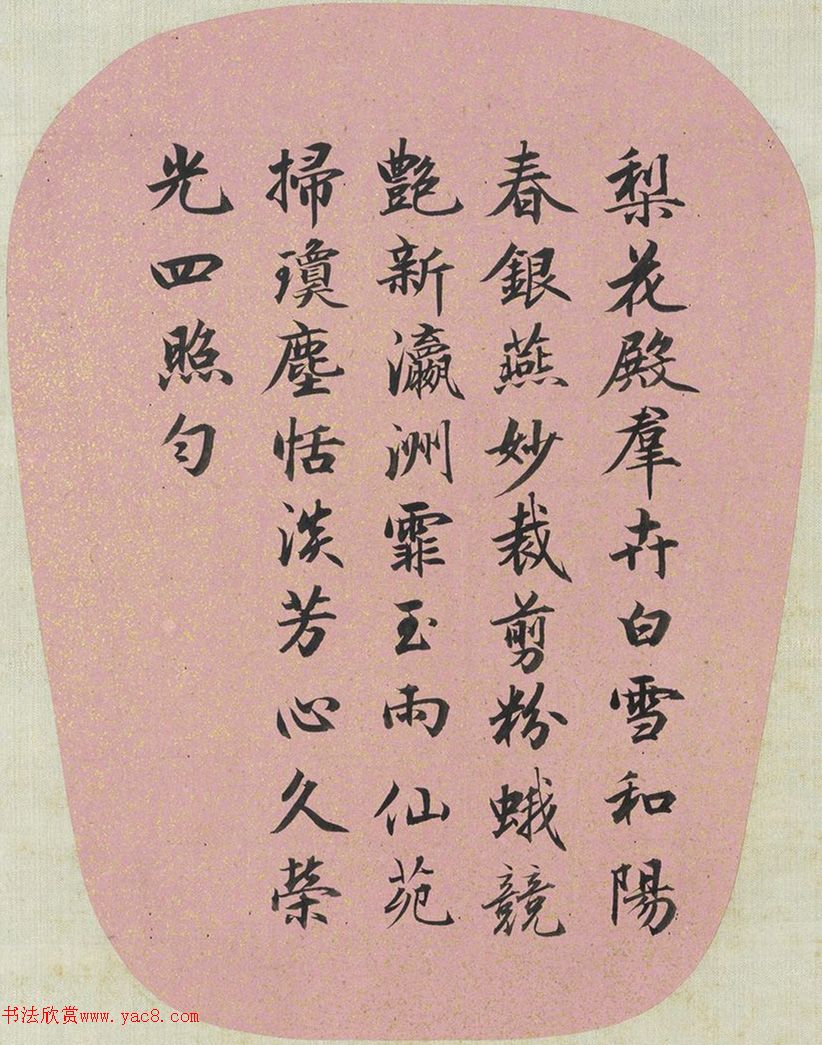 梨花殿羣卉白雪和陽
春銀燕妙裁剪粉蛾競
艷新瀛洲霏玉雨仙苑
掃瓊塵恬淡芳心久榮
光四照勻
书法欣赏www.yac8.com